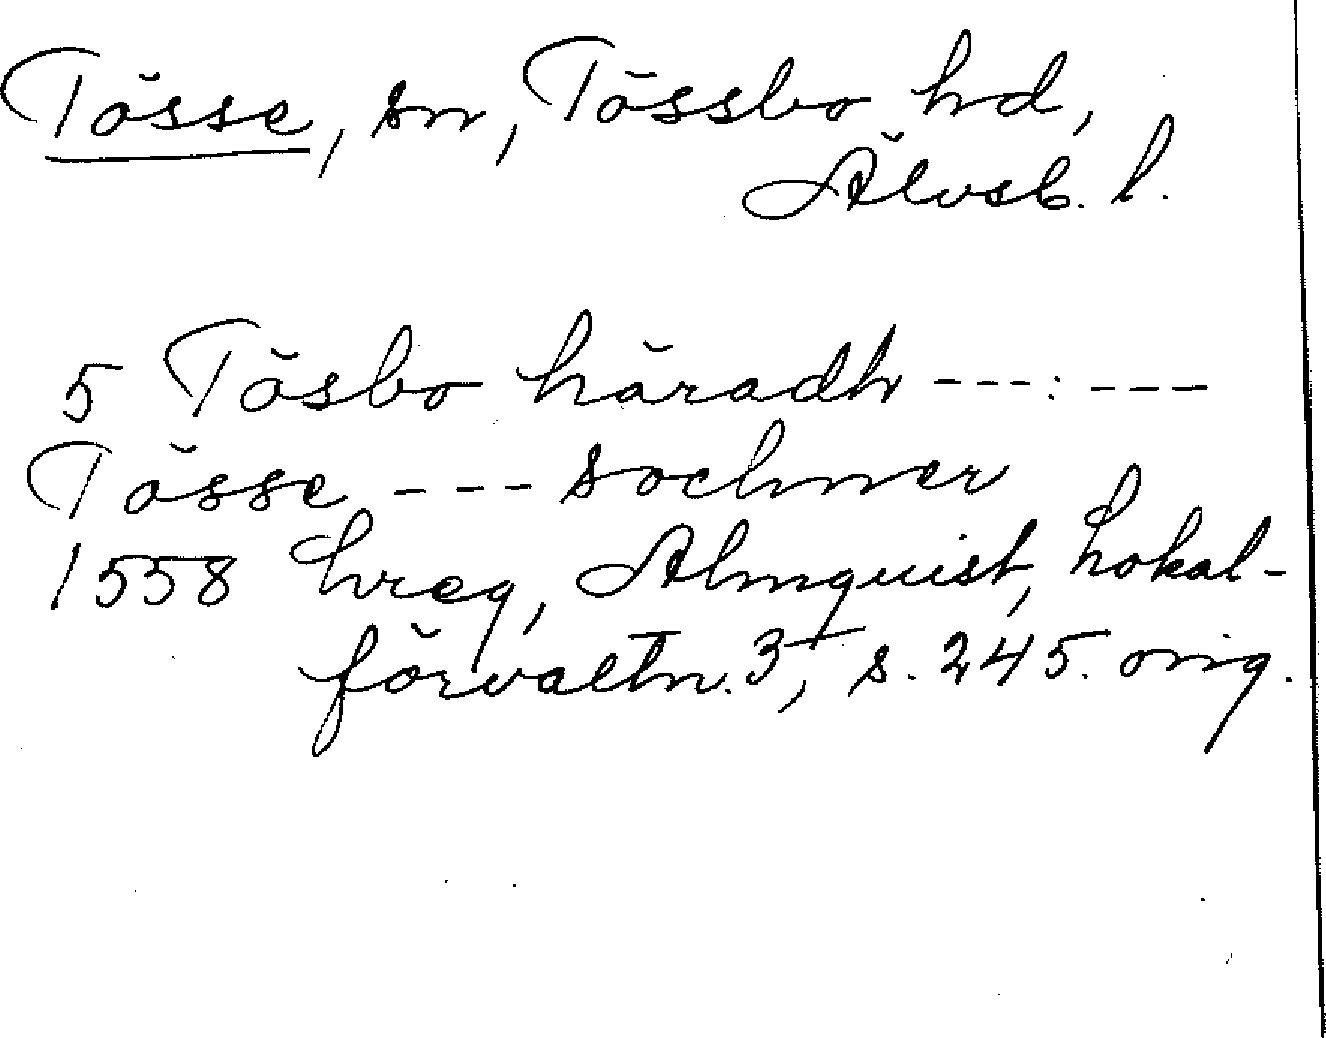 Tösse, sn, Tössbo hd,
Älvsb. l.
5 Tösbo häradh ---:---
Tösse --- sochner
1558 hreg, Almquist, Lokal-
förvaltn. 3, s. 245. orig.